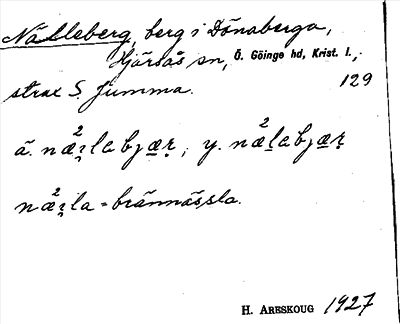 Nälleberg, berg i Dönaberga,
Hjärsås sn, Ö. Göinge hd, Krist. l.,
129
strax S. Jumma.
ä. næ̀²ɀ̣la bjæṛ; y. næ̀²la bjæṛ
næ²ɀ̣la = brännässla.
H. ARESKOUG 1927